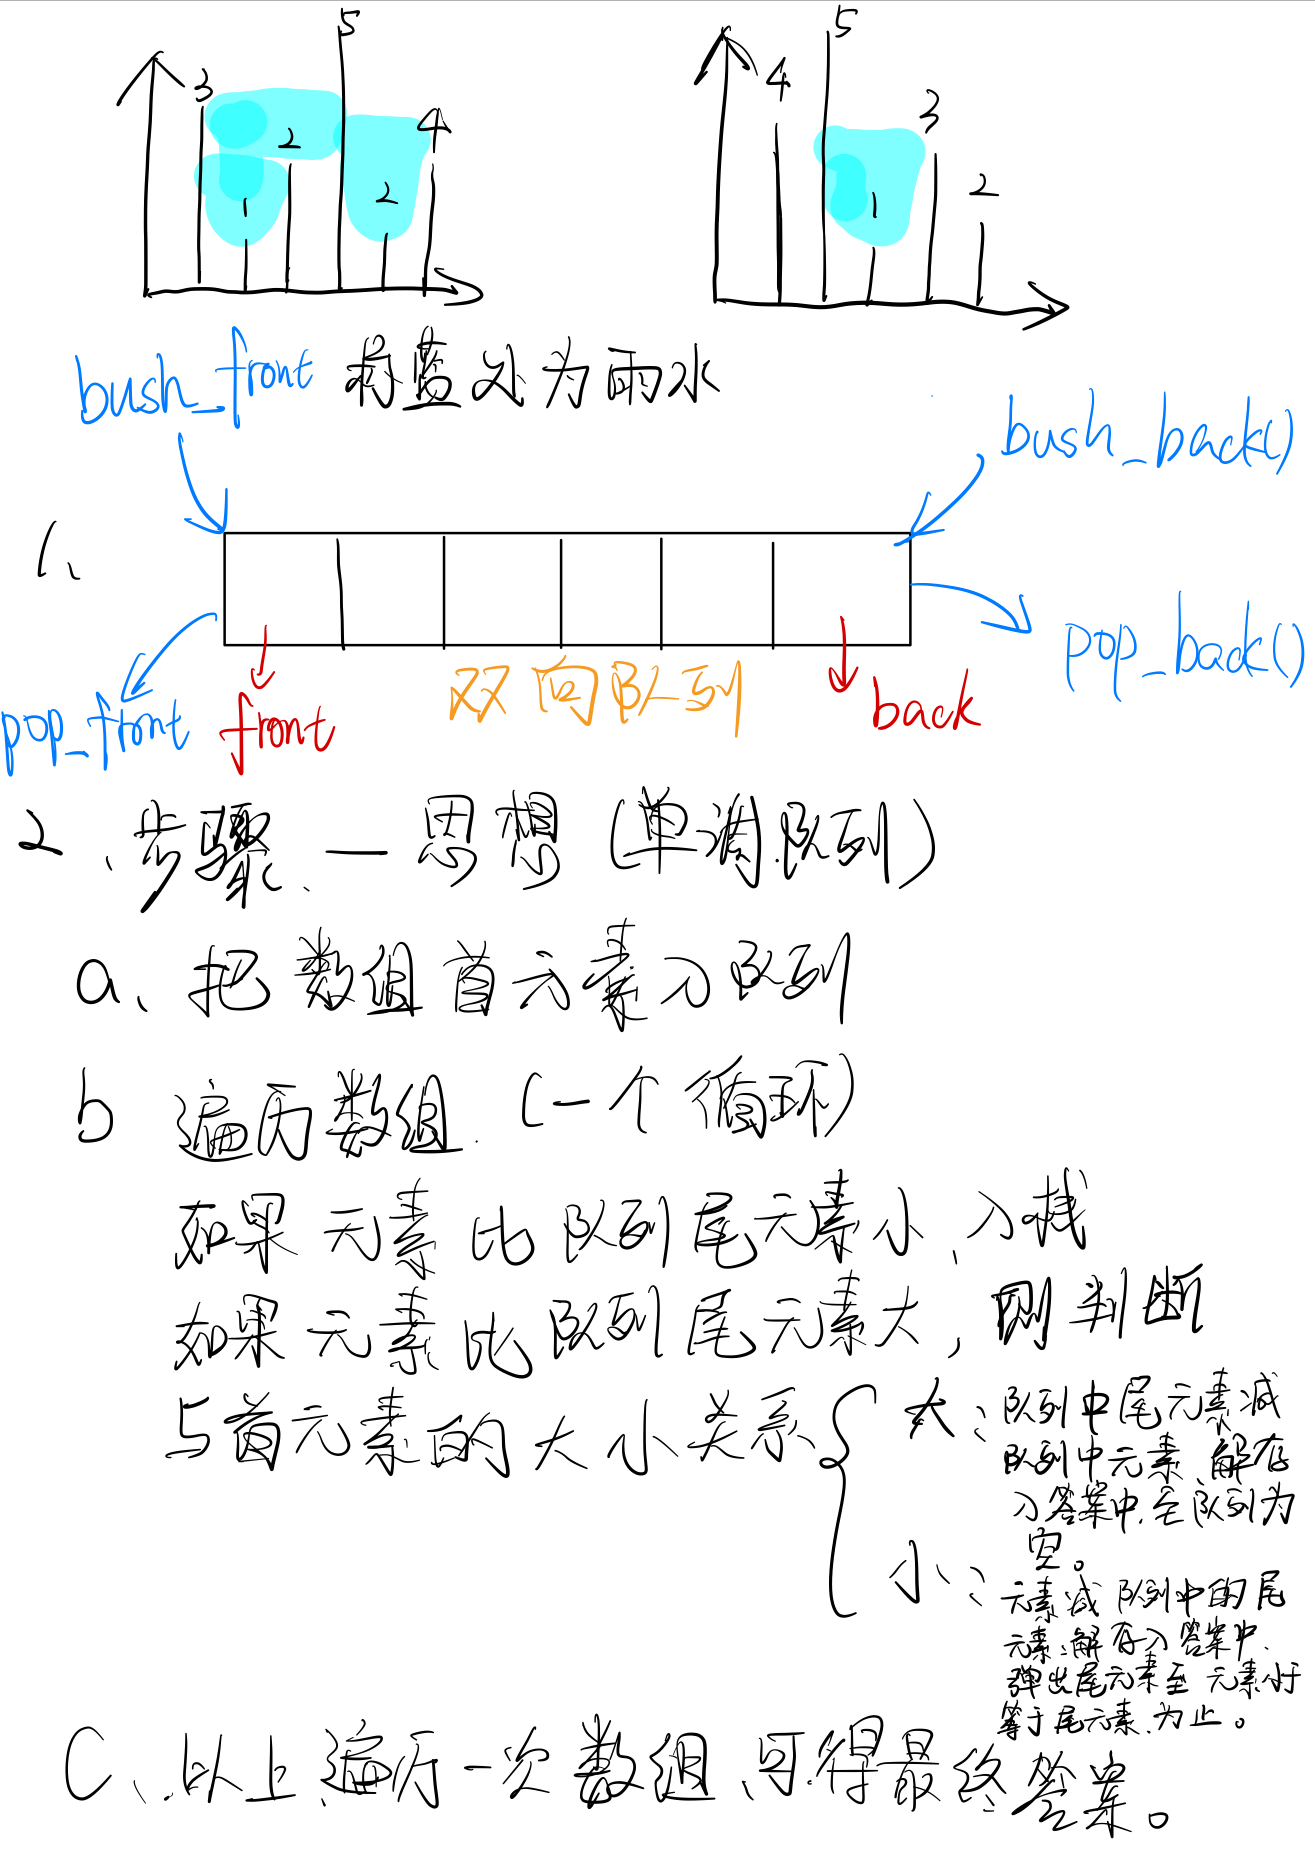 5
3
2
4
1
2
5
4
3
1
2
bush_front 将蓝处为雨水
bush_back()
1、
pop_back()
pop_front
front
双向队列
back
2、步骤、一思想(单调队列)
a、把数组首元素入队列
b 遍历数组.(一个循环)
如果元素比队列尾元素小、入栈
如果元素比队列尾元素大,则判断
与首元素的大小关系
大:队列中尾元素减
队列中元素、解存
入答案中.至队列为
空。
小:元素减队列中的尾
元素:解存入答案中.
弹出尾元素至元素小于
等于尾元素.为止。
C、.以上、遍历一次数组、可得最终答案。